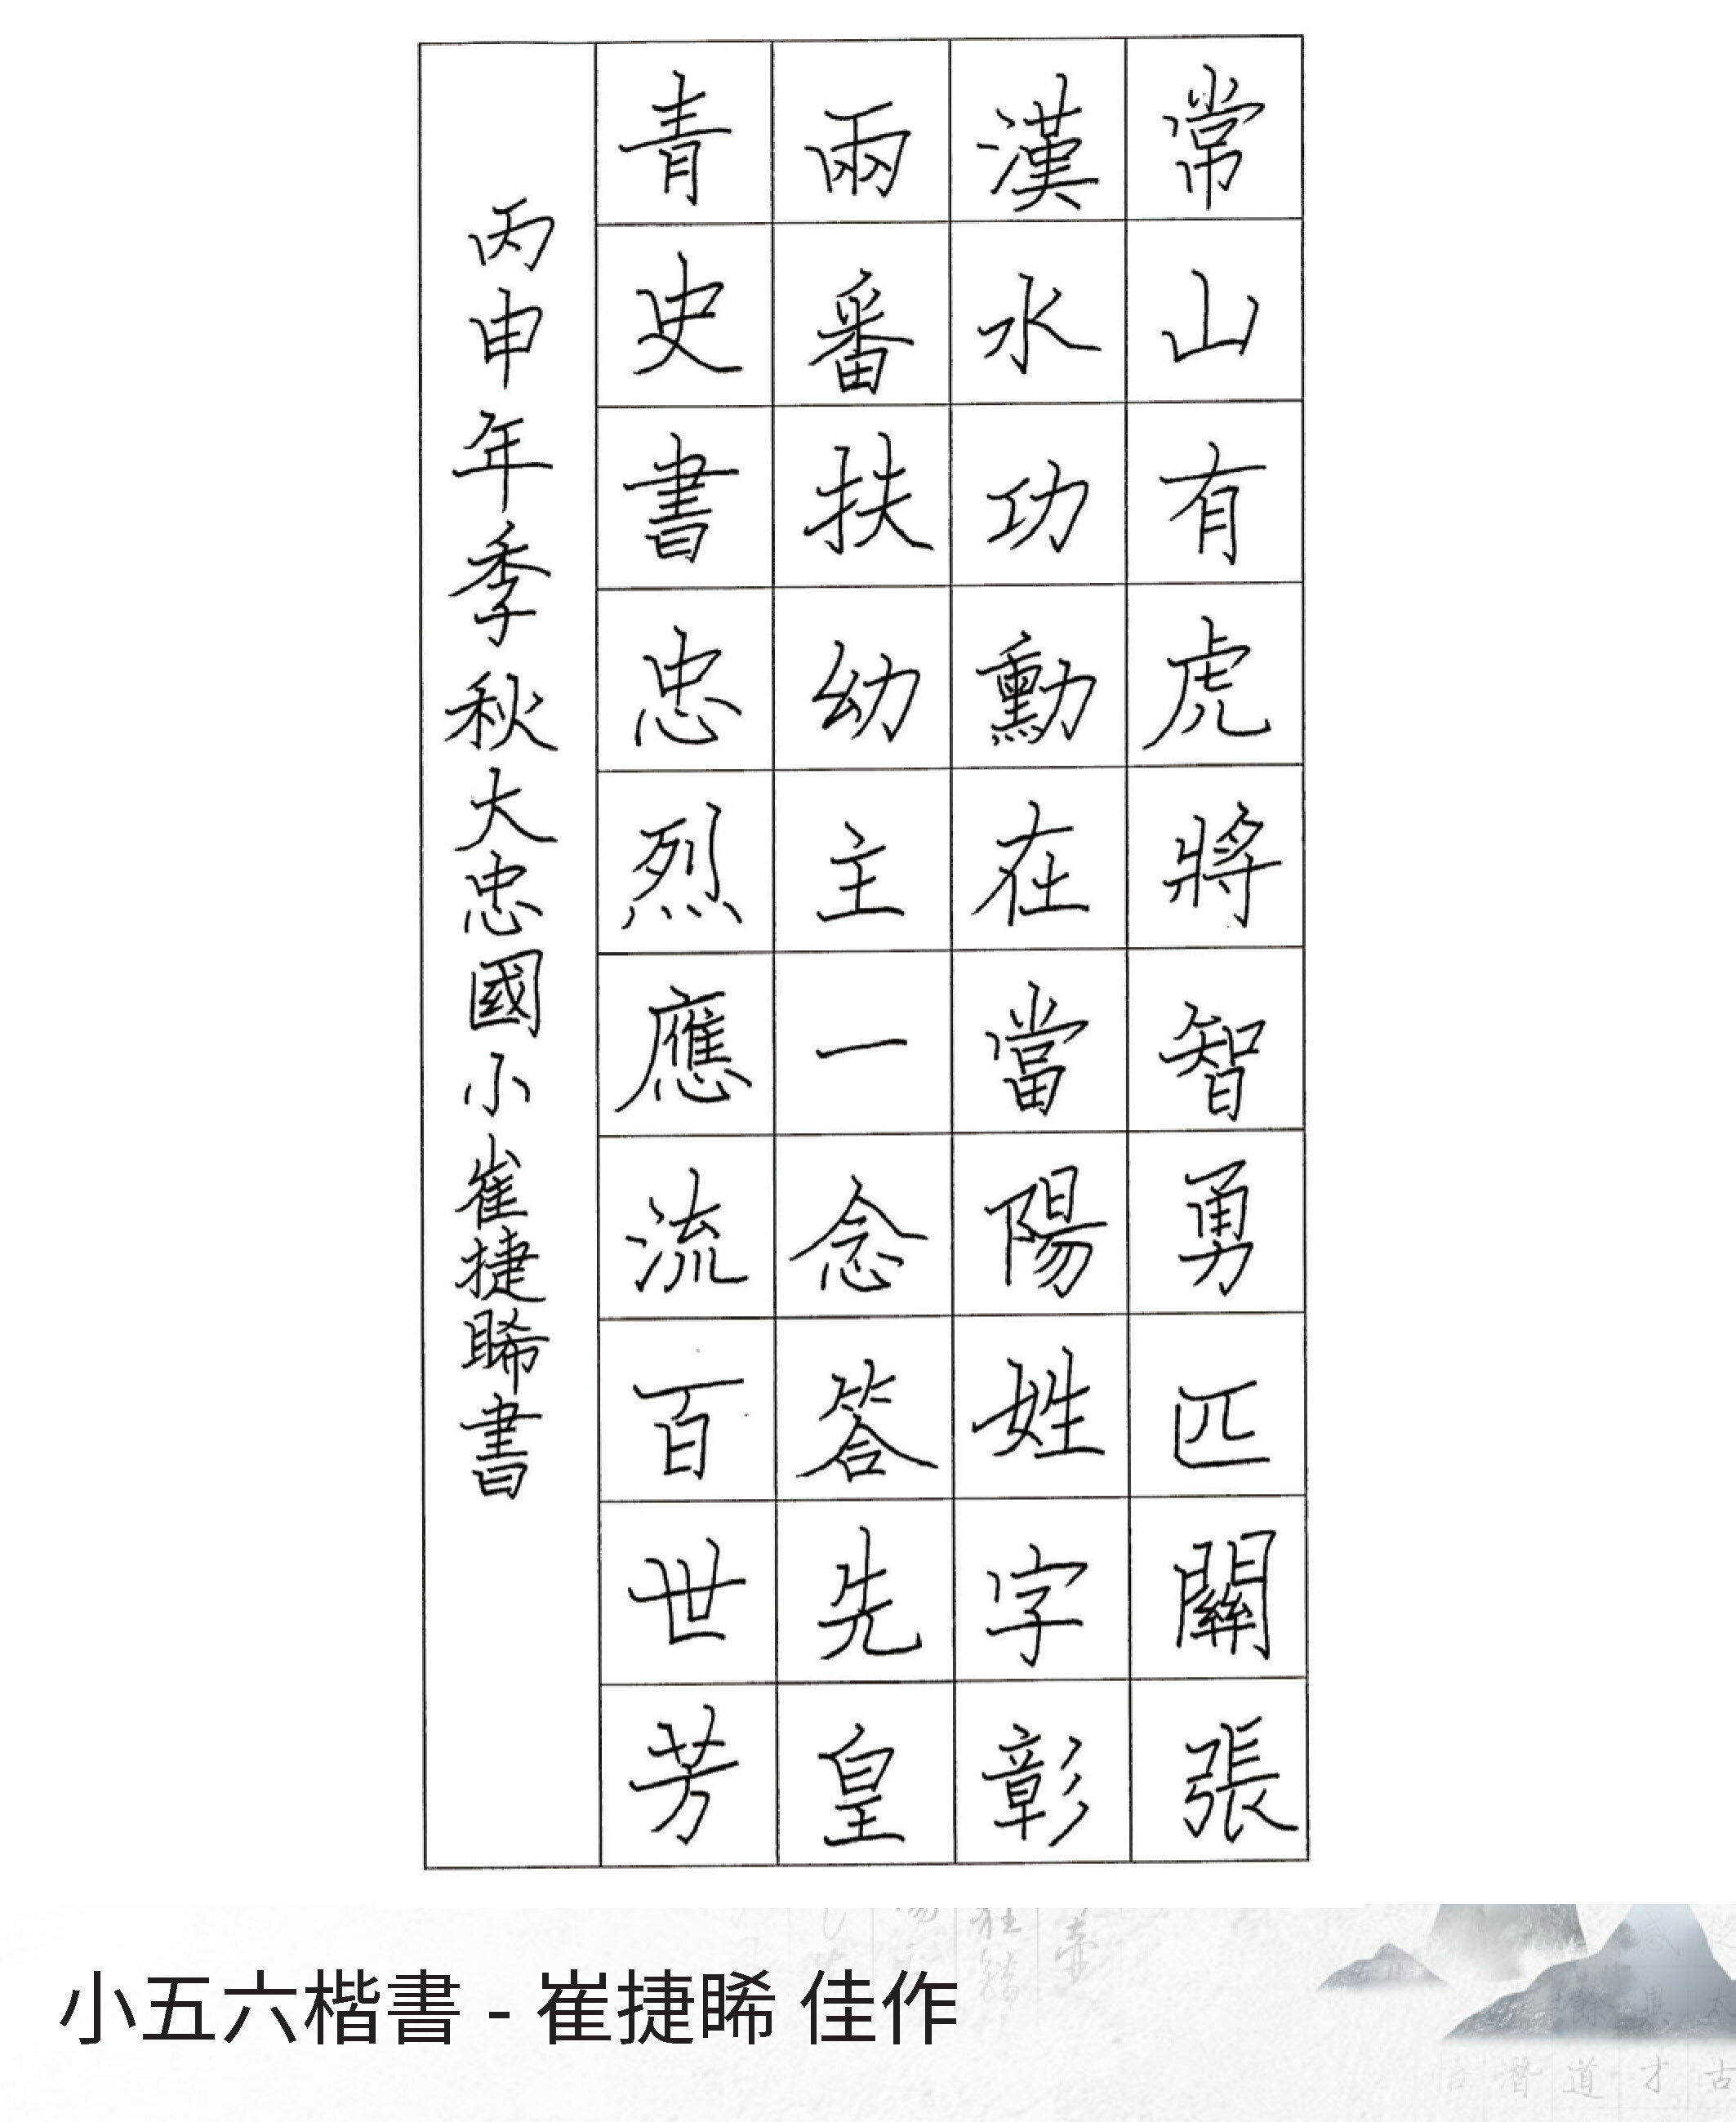 常山有虎將智勇匹關張
漢水功勳在當陽姓字彰
兩番扶幼主一念答先皇
青史書忠烈應流百世芳
丙申年季秋大忠國小崔捷睎書
小五六楷書 - 崔捷睎 佳作